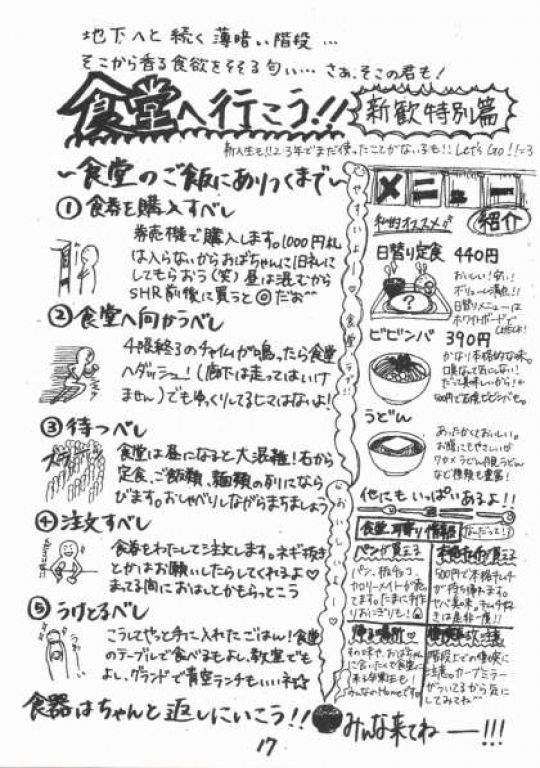 地下へと続く薄暗い階段…
そこから香る食欲をそそる匂い…さぁ、そこの君も!
食堂へ行こう!!
新歓特別篇
新入生も!!2·3年でまだ使ったことがない子も!!Let's Go!!=3
~食堂のご飯にありつくまで~
①食券を購入すべし
券売機で購入します。1000円札
は入らないからおばちゃんに旧札に
してもらおう(笑)昼は混むから
SHR前後に買うと◎だお^^
②食堂へ向かうべし
4限終了のチャイムが鳴ったら食堂
へダッシュ!(廊下は走ってはいけ
ません)でもゆっくりしてるヒマはないよ!
③待つべし
食堂は昼になると大混雑!右から
定食、ご飯類、麺類の列になら
びます。おしゃべりしながらまちましょう
④注文すべし
食券をわたして注文します。ネギ抜き
とかはお願いしたらしてくれるよ♡
まってる間におはしとかもらっとこう
⑤うけとるべし
こうしてやっと手に入れたごはん!食堂
のテーブルで食べるもよし、教室でも
よし、グランドで青空ランチもいいネ☆
食器はちゃんと返しにいこう!!
メニュー
私的オススメ
紹介
日替り定食 440円
おいしい!安い!
ボリューム満点!!
日替りメニューは
ホワイトボードで
ビビンバ 390円
かなり本格的な味。
口臭なんて気にしない!
だって美味しいから!
500円で石焼ビビンバも。
うどん
あったかくておいしい。
お腹にもやさしいが
ワカメうどん
など種類も豊富!
他にもいっぱいあるよ!!
食堂耳寄り情報
なんだって!?
パンが買える
パン、板チョコ、
カロリーメイトが売っ
てます。たまに手作
りおにぎりも!
本格キムチが買える
500円で本格キムチ
が持ち帰れます。
ヤバ美味。キムチ好
きは是非一度!!
帰る場所♡
その味や、おばちゃん
に会いたくて食堂に
来る卒業生も!
みんなのHomeです。
階段上での衝突に
注意。カーブミラー
がついてるから気に
してみてね^^
みんな来てねー!!!
17